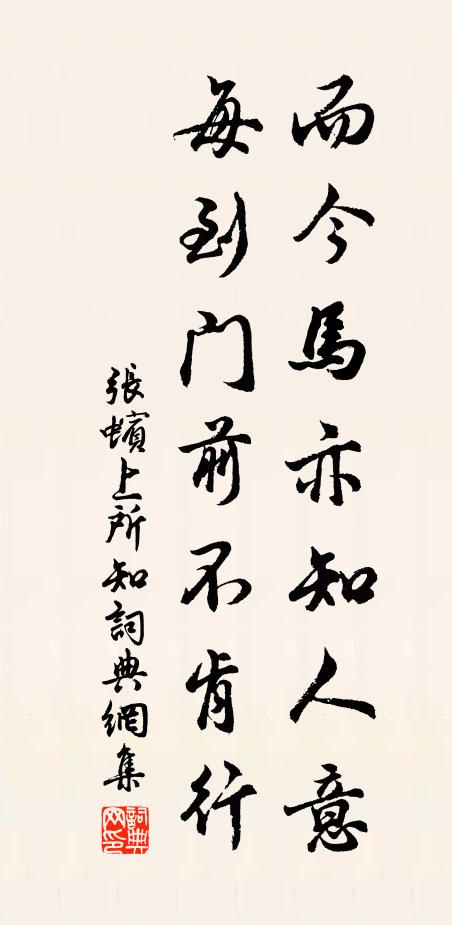 而今馬亦知人意
每到门前不肯行
張蠙上所知詞典網集
詞典网印